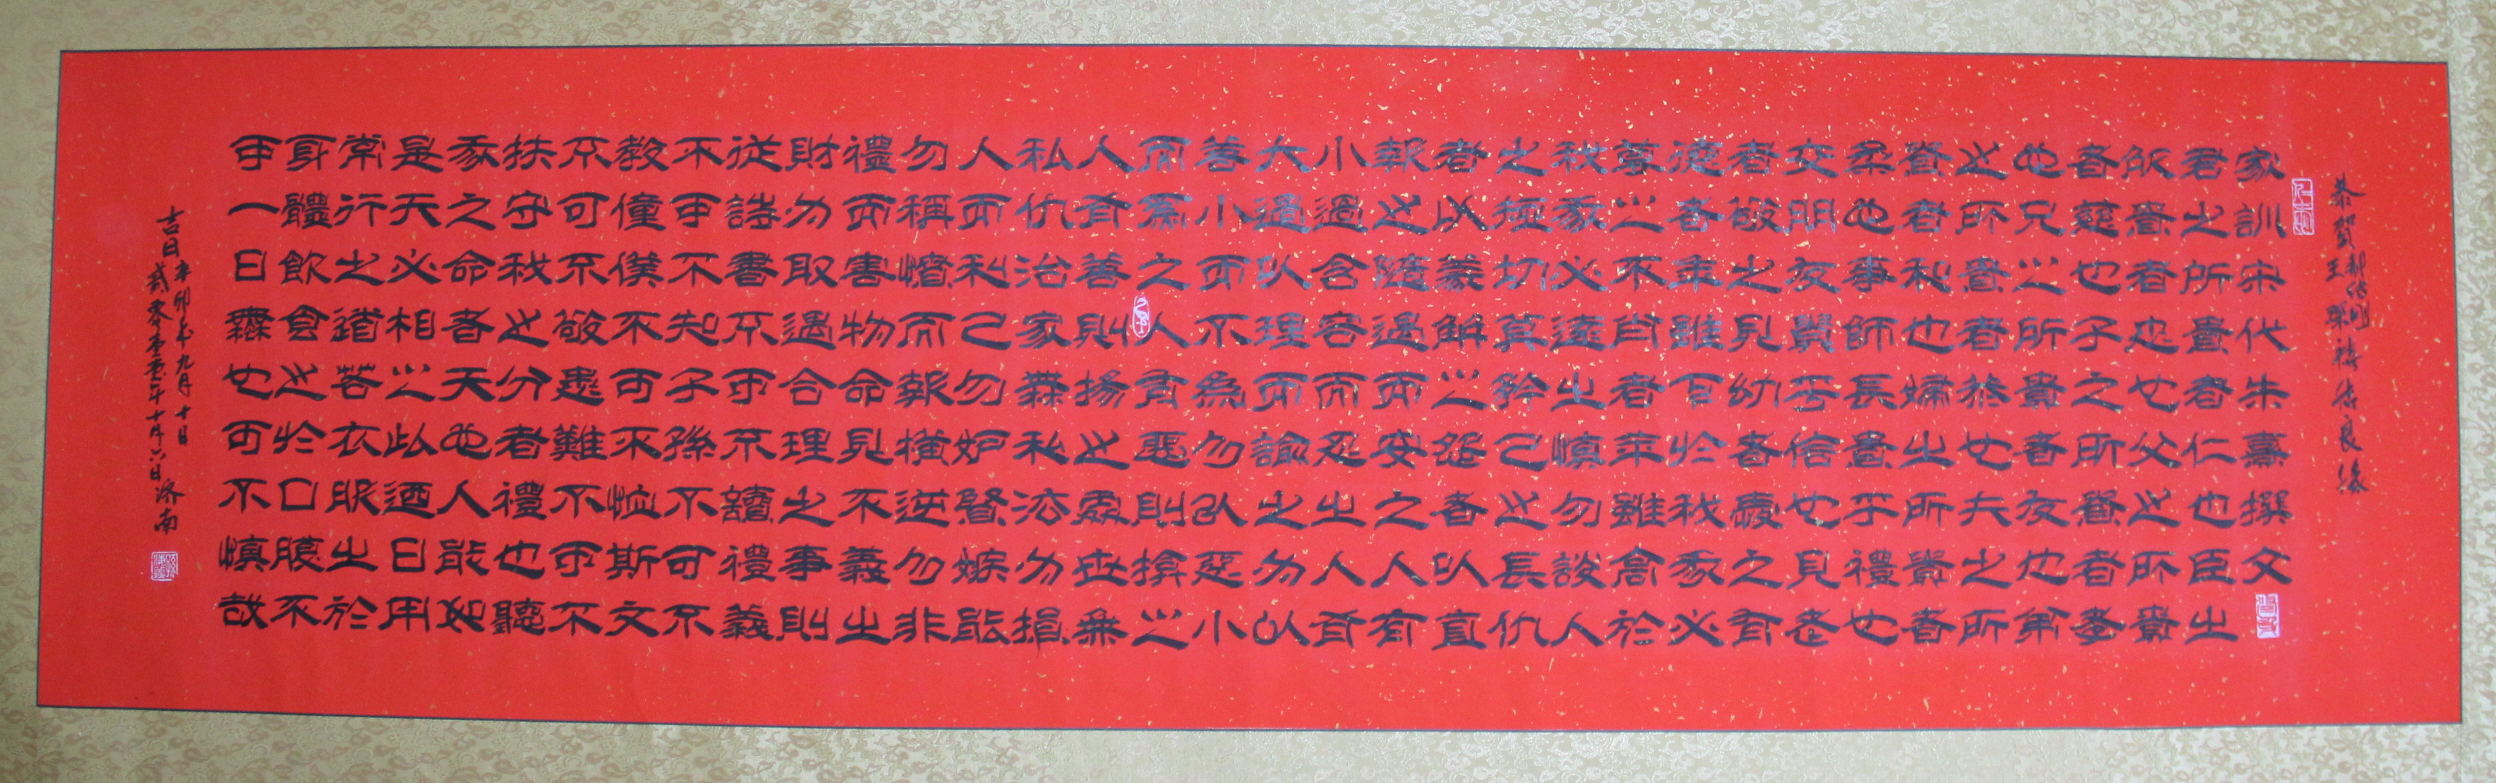 恭賀
王琛
結良緣
家訓宋代朱熹撰文
君之所貴者仁也臣之
所貴者忠也父之所貴
者慈也子之所貴者孝
也兄之所貴者友也弟
之所貴者恭也夫之所
貴者和也婦之所貴者
柔也事師長貴乎禮也
交朋友貴乎信也見老
者敬之見幼者愛之有
德者年雖下於我我必
尊之不肖者年雖高於
我我必遠之慎勿談人
之短切莫矜己之長仇
者以義解之怨者以直
報之隨遇而安之人有
小過含容而忍之人有
大過以理而諭之勿以
善小而不為勿以惡小
而為之人有惡則掩之
人有善則揚之處世無
私仇治家無私法勿損
人而利己勿妒賢嫉能
勿稱憤而報橫逆勿非
禮而害物命見不義之
財勿取遇合理之事則
從詩書不可不讀禮義
不可不知子孫不可不
教僮僕不可不恤斯文
不可不敬患難不可不
扶守我之分者禮也聽
我之命者天也人能如
是天必相之此乃日用
常行之道若衣服之於
身體飲食之於口腹不
可一日無也可不慎哉
吉日
辛卯年九月二十日
貳零壹壹年十月十六日濟南